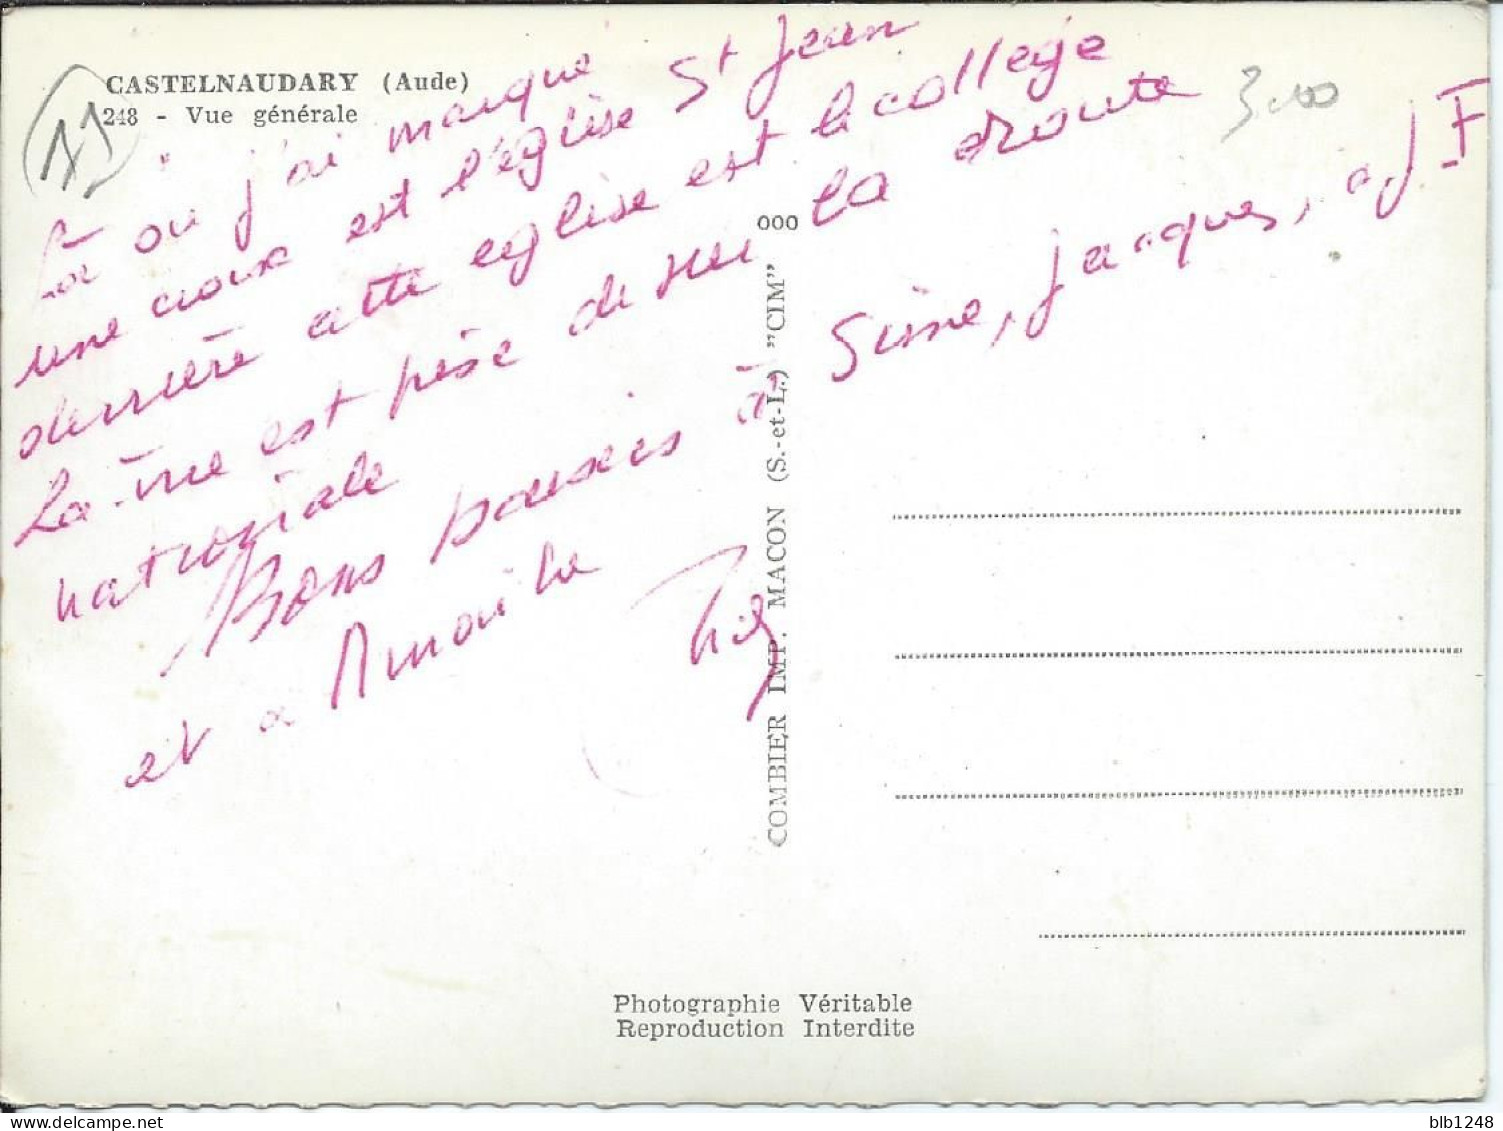 CASTELNAUDARY (Aude)
248 - Vue générale
11
3,00
Là ou j'ai marqué
une croix est l'église St Jean
derrière cette eglise est le college
La vue est prise de sur la droute
nationale
Bons baisers à Sime, Jacques, a J F
et a
000
COMBIER IMP. MACON (S.-et-L.) "CIM"
Photographie Véritable
Reproduction Interdite
blb1248